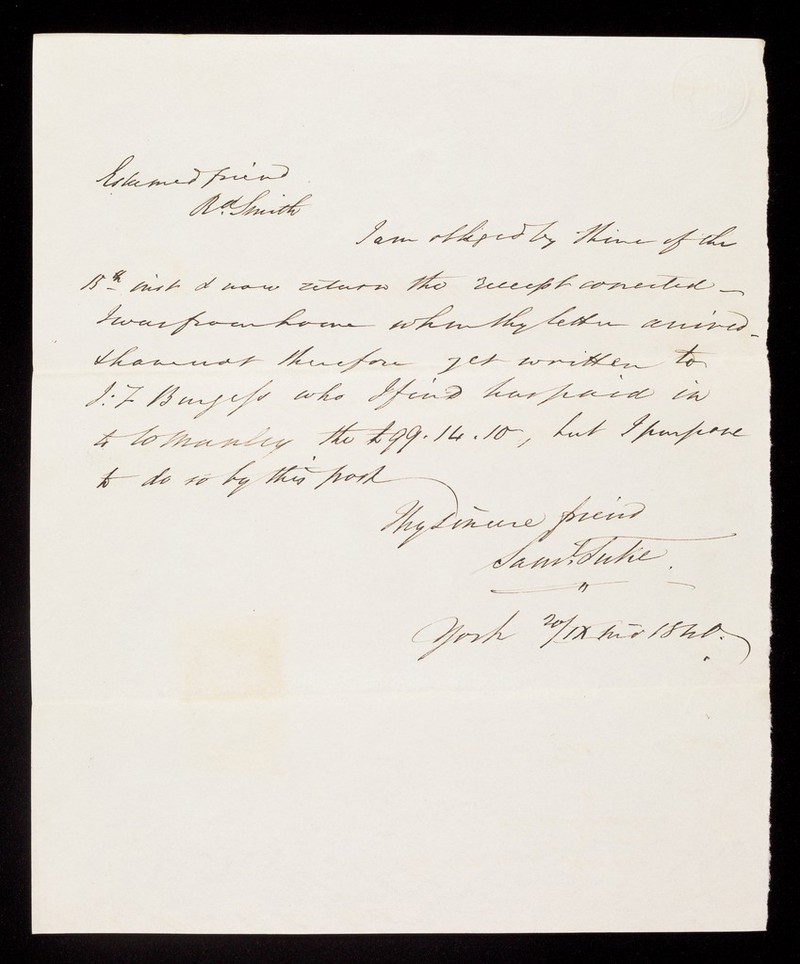 Esteemed friend
Rd. Smith
I am obliged by thine of the
15th inst & now return the receipt corrected –
I was from home when thy letter arrived –
& have not therefore yet written to
J. F. Burgess who I find has paid in
to the £99.14.10, but I purpose
to do so by this post
Thy Sincere friend
Saml. Tuke.
York 20/IX mo 1840.